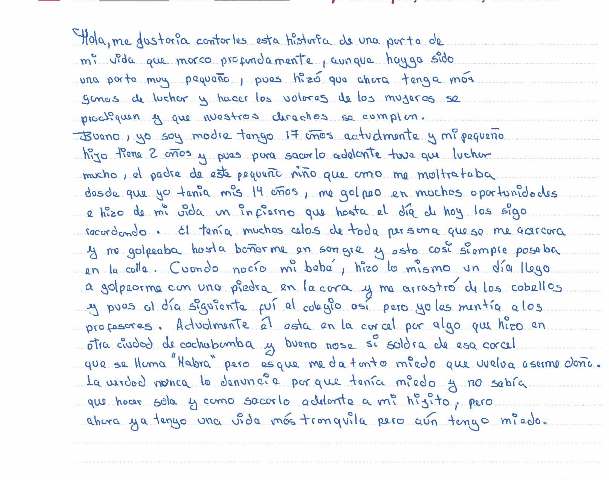 Hola, me gustaria contarles esta historia de una parte de
mi vida que marco profundamente, aunque hayga sido
una parte muy pequeña, pues hizó que ahora tenga más
ganas de luchar y hacer los valores de las mujeres se
practiquen y que nuestros derechos se cumplan.
Bueno, yo soy madre tengo 17 años actualmente y mi pequeño
hijo tiene 2 años y pues para sacarlo adelante tuve que luchar
mucho, el padre de este pequeño niño que amo me maltrataba
desde que yo tenia mis 14 años, me golpeo en muchas oportunidades
e hizo de mi vida un infierno que hasta el día de hoy las sigo
recordando. él tenía muchos celos de toda persona que se me acercara
y me golpeaba hasta bañarme en sangre y esto casi siempre pasaba
en la calle. Cuando nació mi bebé, hizo lo mismo un día llego
a golpearme con una piedra en la cara y me arrastró de los cabellos
y pues al día siguiente fuí al colegio así pero yo les mentía a los
profesores. Actualmente él esta en la carcel por algo que hizo en
otra ciudad de cochabamba y bueno nose si saldra de esa carcel
que se llama "Habra" pero es que me da tanto miedo que vuelva a serme daño.
La verdad nunca lo denuncie por que tenía miedo y no sabía
que hacer sola y como sacarlo adelante a mi hijito, pero
ahora ya tengo una vida más tranquila pero aún tengo miedo.